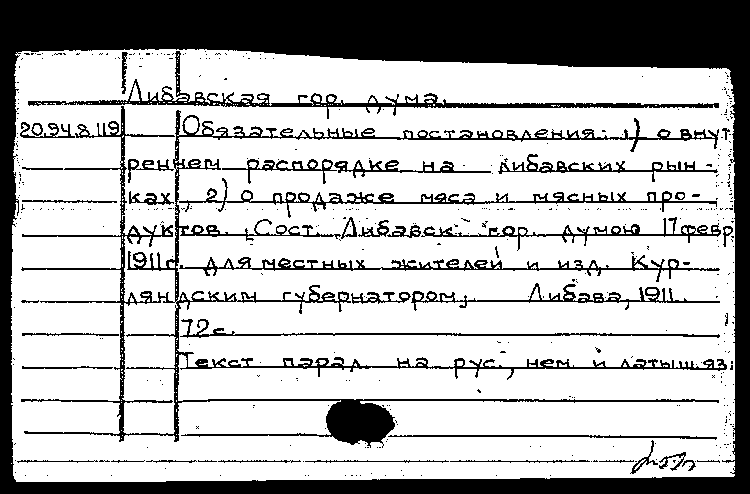 Либавская гор. дума.
20.94.8.119 Обязательные постановления: 1) о внут
реннем распорядке на либавских рын-
ках, 2) о продаже мяса и мясных про-
дуктов. [Сост. Либавск. гор. думою 17 февр
1911 г. для местных жителей и изд. Кур-
ляндским губернатором]. Либава, 1911.
72 с.
Текст парал. на рус., нем. и латыш. яз.